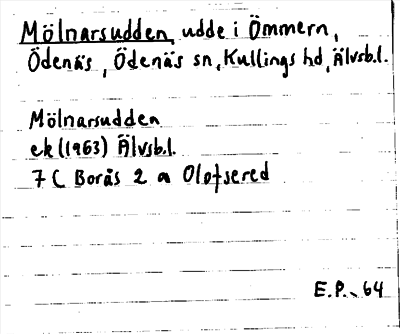 Mölnarsudden, udde i Ömmern,
Ödenäs, Ödenäs sn, Kullings hd, Älvsb.l.
Mölnarsudden
ek (1963) Älvsb.l.
7 C Borås 2 a Olofsered
E.P. -64